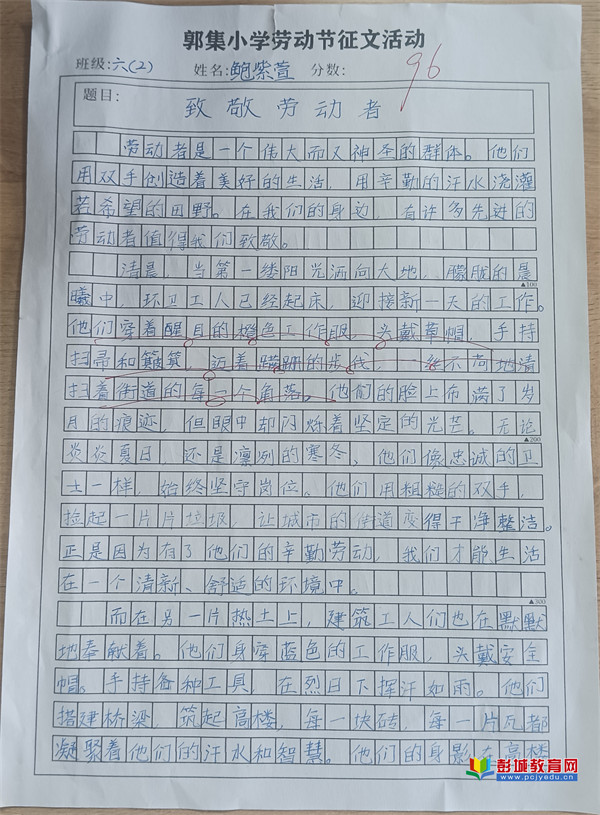 郭集小学劳动节征文活动
班级:六(2) 姓名:鲍紫萱 分数: 96
题目:
致敬劳动者
劳动者是一个伟大而又神圣的群体。他们
用双手创造着美好的生活,用辛勤的汗水浇灌
着希望的田野。在我们的身边,有许多先进的
劳动者值得我们致敬。
清晨,当第一缕阳光洒向大地,朦胧的晨
▲100
曦中,环卫工人已经起床,迎接新一天的工作。
他们穿着醒目的橙色工作服,头戴草帽,手持
扫帚和簸箕,迈着蹒跚的步伐,一丝不苟地清
扫着街道的每一个角落。他们的脸上布满了岁
月的痕迹,但眼中却闪烁着坚定的光芒。无论
▲200
炎炎夏日,还是凛冽的寒冬,他们像忠诚的卫
士一样,始终坚守岗位。他们用粗糙的双手,
捡起一片片垃圾,让城市的街道变得干净整洁。
正是因为有了他们的辛勤劳动,我们才能生活
在一个清新、舒适的环境中。
▲300
而在另一片热土上,建筑工人们也在默默
地奉献着。他们身穿蓝色的工作服,头戴安全
帽。手持各种工具,在烈日下挥汗如雨。他们
搭建桥梁,筑起高楼,每一块砖,每一片瓦都
凝聚着他们的汗水和智慧。他们的身影在高楼
彭城教育网
www.pcjyedu.cn